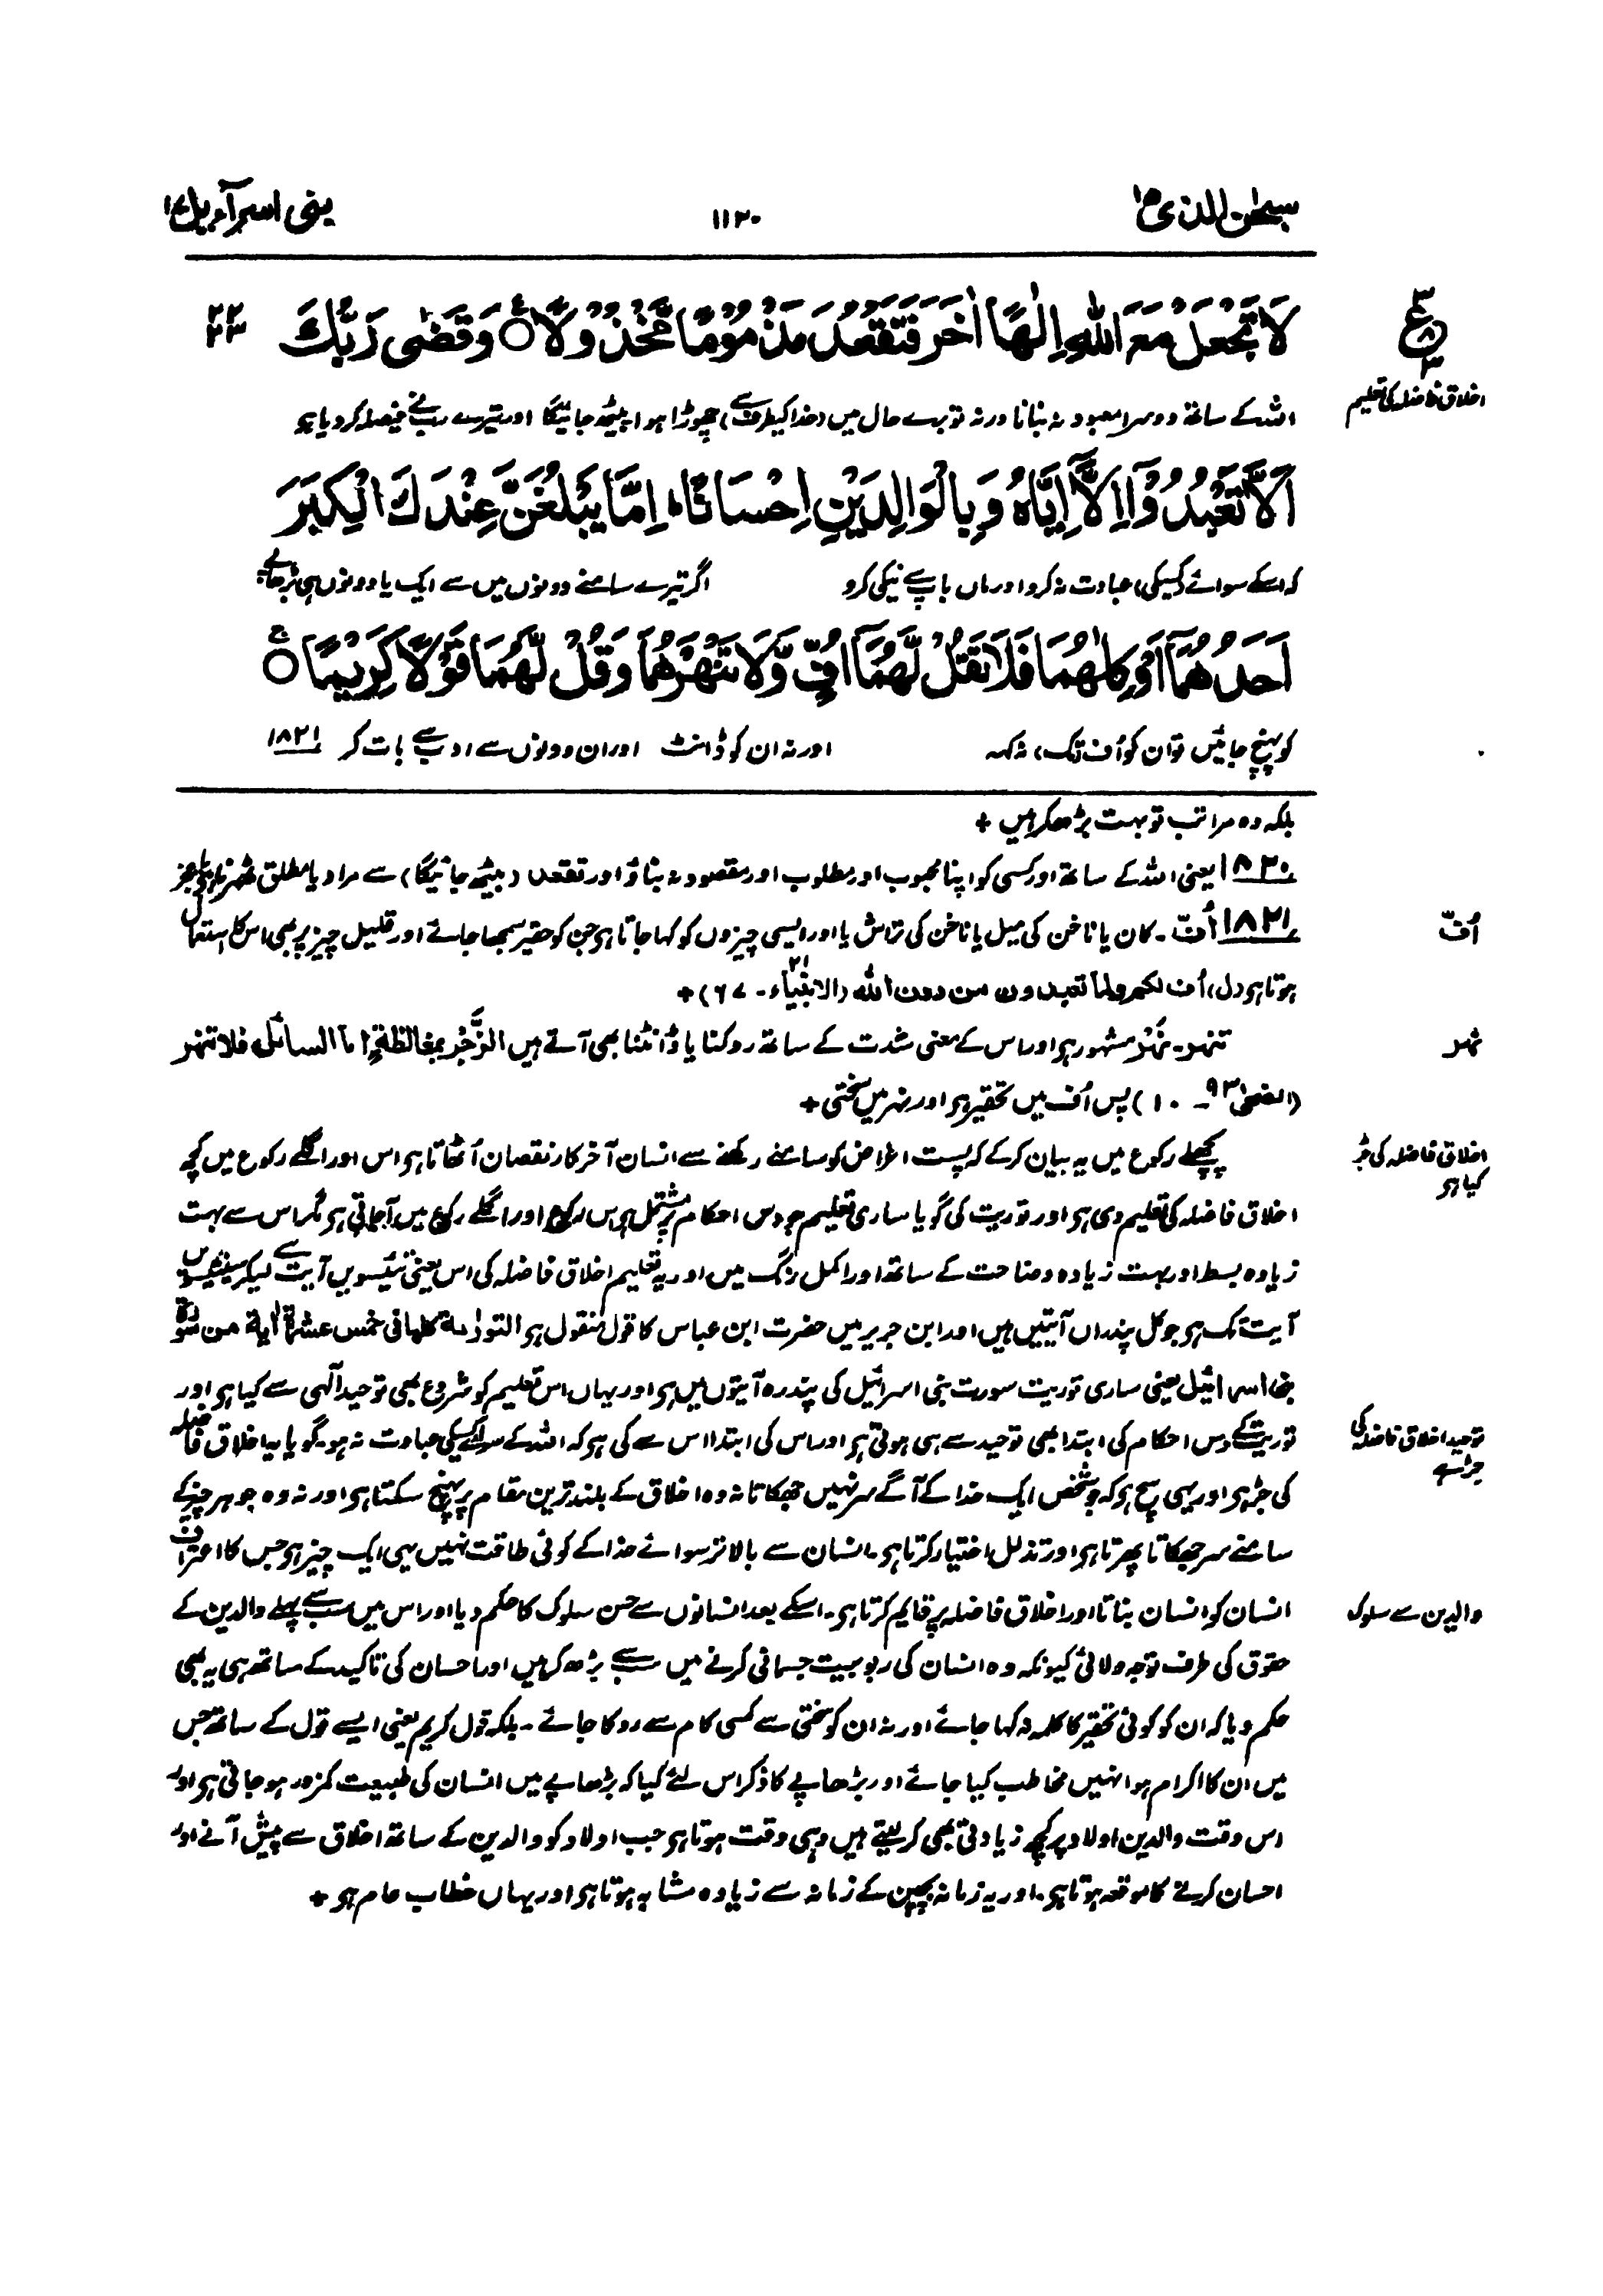 سبحٰن الذی ۱۵
۱۱۲۰
بنی اسرآءیل ۱۷
ع
۸
۳
اخلاق فاضلہ کی تعلیم
لَا تَجْعَلْ مَعَ اللّٰهِ اِلٰهًا اٰخَرَ فَتَقْعُدَ مَذْمُوْمًا مَّخْذُوْلًا ○ وَقَضٰی رَبُّكَ
۲۲
۲۳
اللہ کے ساتھ دوسرا معبود نہ بنانا ورنہ تو برے حال میں (خدا کیطرف سے) چھوڑا ہوا بیٹھ جائیگا اور تیرے رب نے فیصلہ کردیا ہی
اَلَّا تَعْبُدُوْٓا اِلَّآ اِیَّاهُ وَبِالْوَالِدَیْنِ اِحْسَانًا ؕ اِمَّا یَبْلُغَنَّ عِنْدَكَ الْكِبَرَ
کہ اسکے سوائے (کسیکی) عبادت نہ کرو اور ماں باپ سے نیکی کرو اگر تیرے سامنے دونوں میں سے ایک یا دونوں ہی بڑھاپے
اَحَدُهُمَآ اَوْ كِلٰهُمَا فَلَا تَقُلْ لَّهُمَآ اُفٍّ وَّلَا تَنْهَرْهُمَا وَقُلْ لَّهُمَا قَوْلًا كَرِیْمًا ○
کو پہنچ جائیں تو ان کو اُف (تک) نہ کہہ اور نہ ان کو ڈانٹ اور ان دونوں سے ادب سے بات کر ۱۸۲۱
بلکہ وہ مراتب تو بہت بڑھکر ہیں +
۱۸۲۰ یعنی اللہ کے ساتھ اور کسی کو اپنا محبوب اور مطلوب اور مقصود نہ بناؤ اور تقعد (بیٹھ جائیگا) سے مراد یا مطلق ٹھہرنا ہو یا عجز
اُفّ
۱۸۲۱ اُفّ۔ کان یا ناخن کی میل یا ناخن کی تراش یا اور ایسی چیزوں کو کہا جاتا ہی جن کو حقیر سمجھا جائے اور قلیل چیز پر بھی اس کا استعمال
ہوتا ہی (ل)، اُف لكم ولما تعبدون من دون الله (الانبیاء ۲۱۔ ۶۷) +
نہر
تنہر۔ نَہْرٌ مشہور ہی اور اس کے معنی شدت کے ساتھ روکنا یا ڈانٹنا بھی آتے ہیں الزَّجْرُ بمغالظةٍ اما السائل فلا تنهر
(الضحیٰ ۹۳۔ ۱۰) پس اُف میں تحقیر ہی اور نہر میں سختی +
اخلاق فاضلہ کی جڑ
کیا ہی
پچھلے رکوع میں یہ بیان کرکے کہ پست اغراض کو سامنے رکھنے سے انسان آخر کار نقصان اُٹھاتا ہی اس اور اگلے رکوع میں کچھ
اخلاق فاضلہ کی تعلیم دی ہی اور توریت کی گویا ساری تعلیم جو دس احکام پر مشتمل ہی اس رکوع اور اگلے رکوع میں آجاتی ہی مگر اس سے بہت
زیادہ بسط اور بہت زیادہ وضاحت کے ساتھ اور اکمل رنگ میں اور یہ تعلیم اخلاق فاضلہ کی اس یعنی تئیسویں آیت سے لیکر سینتیسویں
آیت تک ہی جو کل پندراں آیتیں ہیں اور ابن جریر میں حضرت ابن عباس کا قول منقول ہی التوراة كلها فی خمس عشرة اٰیة من سورة
بنی اسرائیل یعنی ساری توریت سورت بنی اسرائیل کی پندرہ آیتوں میں ہی اور یہاں اس تعلیم کو شروع بھی توحید الٰہی سے کیا ہی اور
توحید اخلاق فاضلہ کی
جڑ ہے
توریت کے دس احکام کی ابتدا بھی توحید سے ہی ہوتی ہی اور اس کی ابتدا اس سے کی ہی کہ اللہ کے سوائے کسیکی عبادت نہ ہو۔ گویا یہ اخلاق فاضلہ
کی جڑ ہی اور یہی سچ ہی کہ جو شخص ایک خدا کے آگے سر نہیں جھکاتا نہ وہ اخلاق کے بلند ترین مقام پر پہنچ سکتا ہی اور نہ وہ جو ہر چیز کے
سامنے سر جھکاتا پھرتا ہی اور تذلل اختیار کرتا ہی۔ انسان سے بالاتر سوائے خدا کے کوئی طاقت نہیں یہی ایک چیز ہی جس کا اعتراف
والدین سے سلوک
انسان کو انسان بناتا اور اخلاق فاضلہ پر قایم کرتا ہی۔ اسکے بعد انسانوں سے حسن سلوک کا حکم دیا اور اس میں سب سے پہلے والدین کے
حقوق کی طرف توجہ دلائی کیونکہ وہ انسان کی ربوبیت جسمانی کرنے میں سب سے بڑھ کر ہیں اور احسان کی تاکید کے ساتھ ہی یہ بھی
حکم دیا کہ ان کو کوئی تحقیر کا کلمہ نہ کہا جائے اور نہ ان کو سختی سے کسی کام سے روکا جائے۔ بلکہ قول کریم یعنی ایسے قول کے ساتھ جس
میں ان کا اکرام ہو انہیں مخاطب کیا جائے اور بڑھاپے کا ذکر اس لئے کیا کہ بڑھاپے میں انسان کی طبیعت کمزور ہو جاتی ہی اور
اس وقت والدین اولاد پر کچھ زیادتی بھی کر لیتے ہیں وہی وقت ہوتا ہی جب اولاد کو والدین کے ساتھ اخلاق سے پیش آنے اور
احسان کرنے کا موقعہ ہوتا ہی۔ اور یہ زمانہ بچپن کے زمانہ سے زیادہ مشابہ ہوتا ہی اور یہاں خطاب عام ہی +